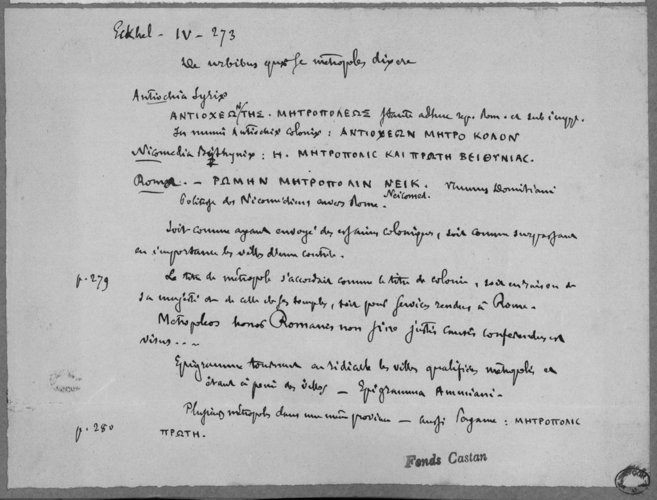 Eckhel - IV - 273
De urbibus quæ se metropoles dixere
Antiochia Syriæ
ΑΝΤΙΟΧΕΩΝ ΤΗΣ. ΜΗΤΡΟΠΟΛΕΩΣ stante adhuc rep. Rom. et sub impp.
In numis Antiochiæ coloniæ : ΑΝΤΙΟΧΕΩΝ ΜΗΤΡΟ ΚΟΛΟΝ
Nicomedia Bithyniæ : Η. ΜΗΤΡΟΠΟΛΙC ΚΑΙ ΠΡΩΤΗ ΒΕΙΘΥΝΙΑC.
Roma. — ΡΩΜΗΝ ΜΗΤΡΟΠΟΛΙΝ ΝΕΙΚ. Numus Domitiani
Neicomed.
Politesse des Nicomédiens envers Rome.
Soit comme ayant envoyé des essaims coloniques, soit comme surpassant
en importance les villes d'une contrée.
p. 279
Le titre de métropole s'accordait comme le titre de colonie, soit en raison de
sa majesté ou de celle de ses temples, soit pour services rendus à Rome.
Metropoleos honos Romanis non sine justis causis conferendus est
visus...
Epigramme tournant en ridicule les villes qualifiées métropoles et
étant à peine des villes — Epigramma Ammiani.
p. 280
Plusieurs métropoles dans une même province — aussi Pergame : ΜΗΤΡΟΠΟΛΙC
ΠΡΩΤΗ.
Fonds Castan